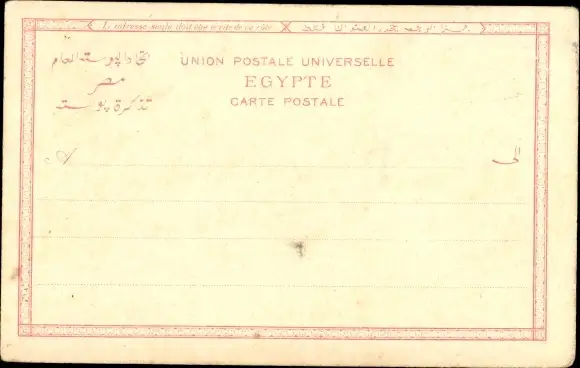 L'adresse seule doit être écrite de ce côté
UNION POSTALE UNIVERSELLE
EGYPTE
CARTE POSTALE
اتحاد البوسته العام
مصر
تذكرة بوسته
A
الى